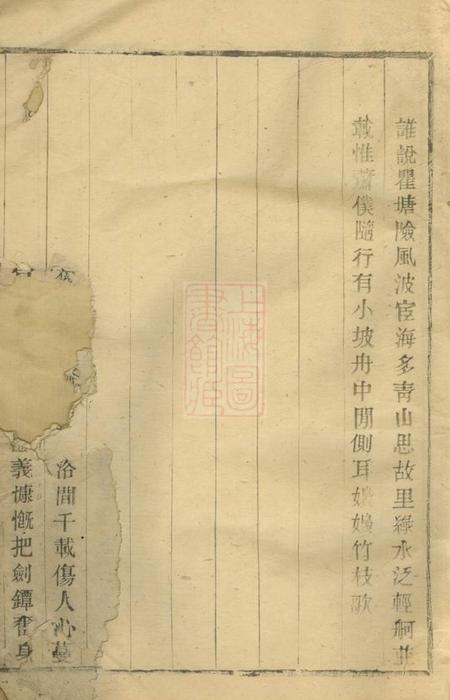 誰說瞿塘險風波宦海多青山思故里綠水泛輕舸並
載惟 僕隨行有小坡舟中閒側耳 竹枝歌
洛間千載傷人心蔓
義慷慨把劍鐔奮身
上海圖書館藏